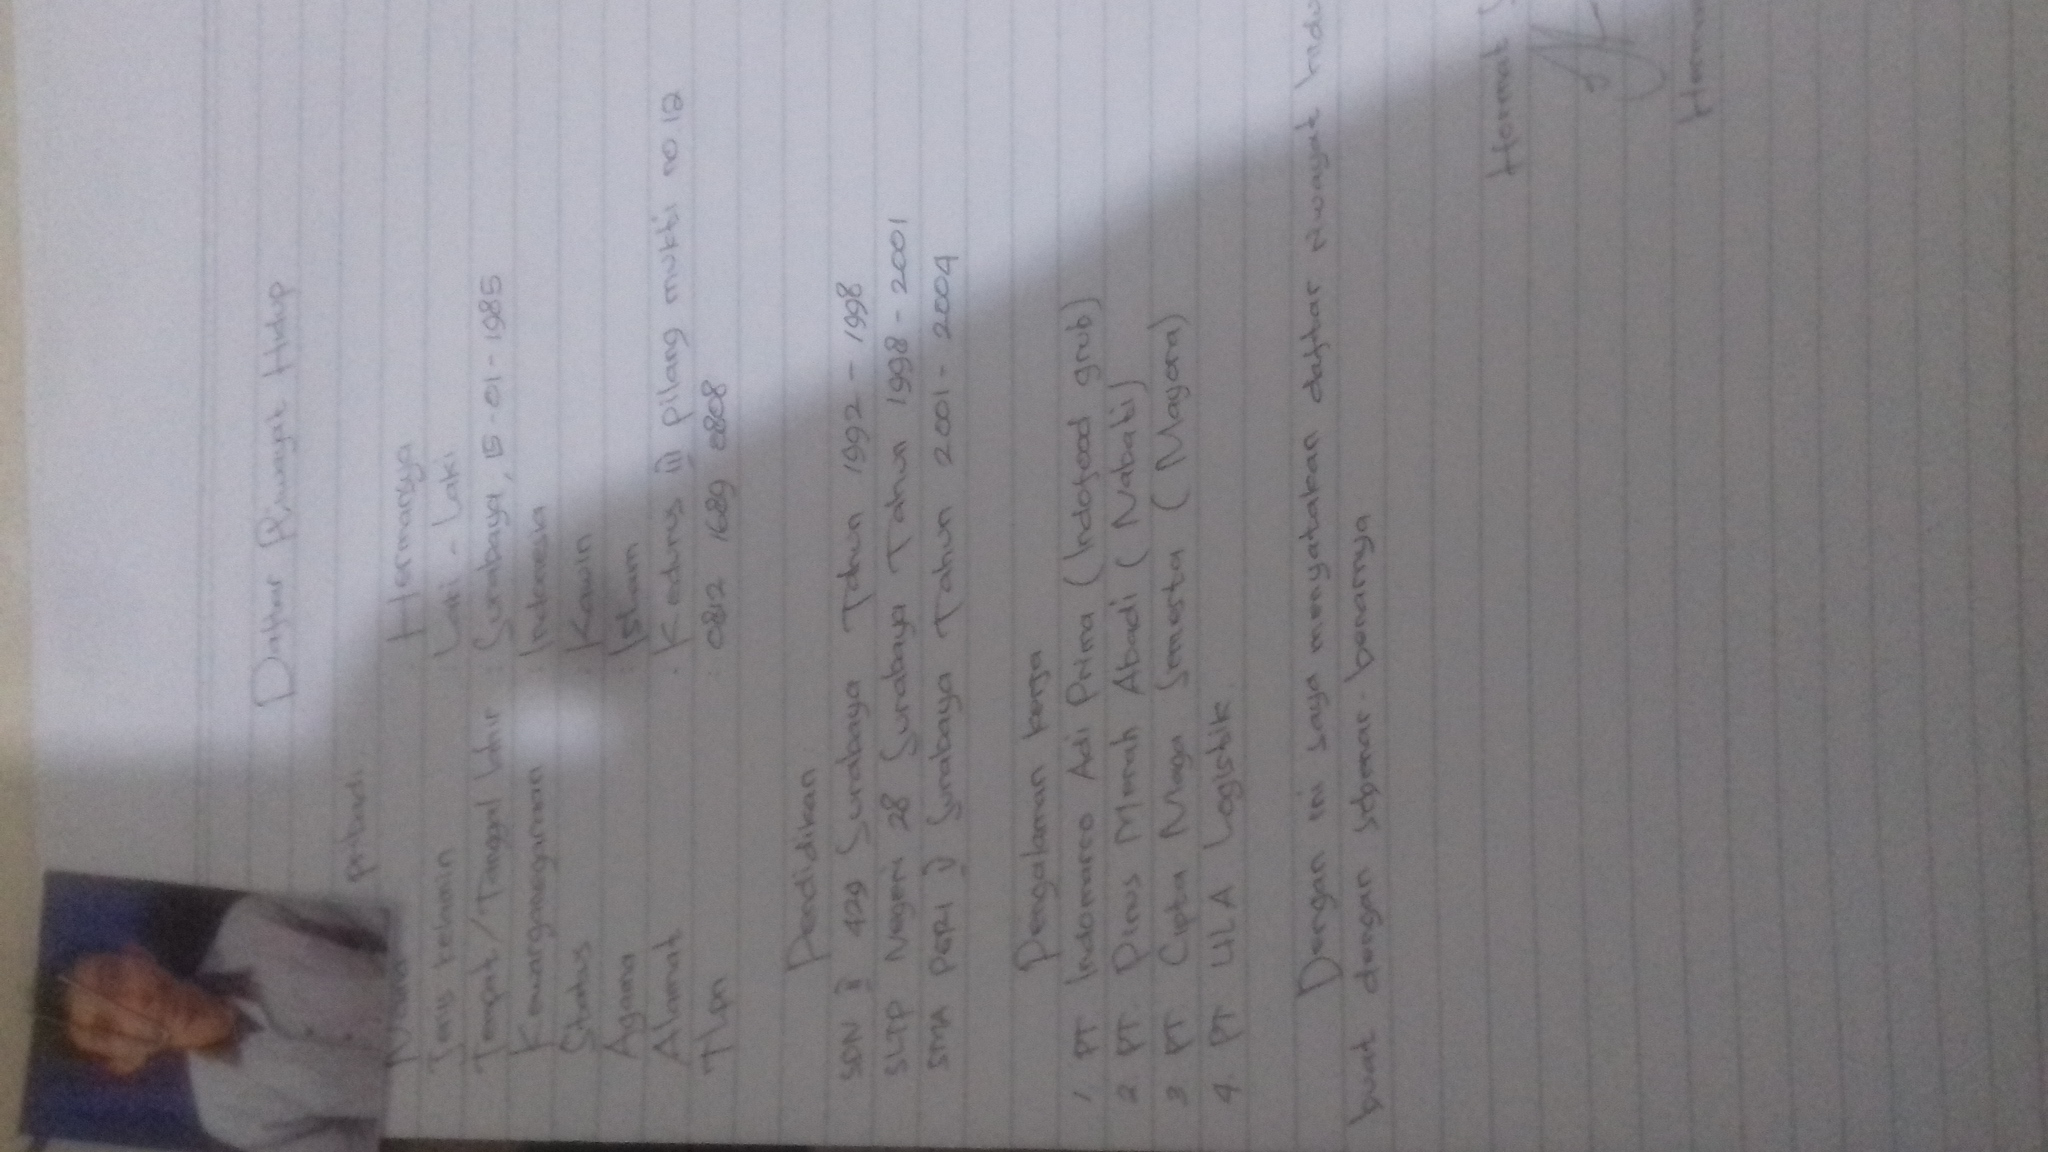 Daftar Riwayat Hidup
pribadi
Nama Hermansya
Jenis kelamin Laki - Laki
Tempat / Tanggal lahir : Surabaya, 15-01-1985
Kewarganegaraan : Indonesia
Status : Kawin
Agama : Islam
Alamat : Kedurus III pilang mukti no 12
Tlpn : 0812 1689 0808
Pendidikan
SDN 429 Surabaya Tahun 1992 - 1998
SLTP Negeri 28 Surabaya Tahun 1998 - 2001
SMA PGRI Surabaya Tahun 2001 - 2004
Pengalaman kerja
1. PT Indomarco Adi Prima (Indofood grub)
2. PT. Pinus Merah Abadi (Nabati)
3 PT. Cipta Niaga Semesta (Mayora)
4. PT Logistik
Dengan ini saya menyatakan daftar riwayat hidu
buat dengan sebenar-benarnya
Hormat